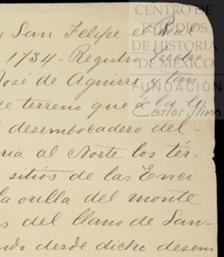 San Felipe el Real
1734. Registro
José de Aguirre y
de terreno que
desembocadero del
al Norte los tér-
sitios de las Enci
la orilla del monte
del llano de San-
ndo desde dicho desem
CENTRO DE
ESTUDIOS
DE HISTORIA
DE MÉXICO
FUNDACIÓN
Carlos Slim